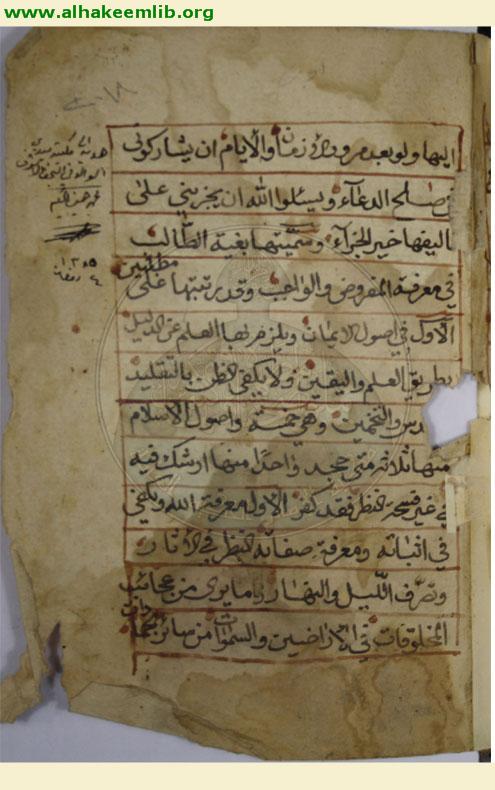 www.alhakeemlib.org
اليها ولو بعد مرور الازمان والايام ان يشاركوني
في صالح الدعاء ويسئلوا الله ان يجزيني على
تاليفها خير الجزاء وسميتها بغية الطالب
في معرفة المفروض والواجب وقد رتبتها على مطلبين
الاول في اصول الايمان ويلزم لها العلم عن الدليل
بطريق العلم واليقين ولا يكفي الظن بالتقليد
والتخمين وهي خمسة واصول الاسلام
منها ثلاثة متى جحد واحدا منها اوشك فيه
في غير فسحة النظر فقد كفر الاول معرفة الله ويكفي
في اثباته ومعرفة صفاته النظر في الآثار
وتصرف الليل والنهار وما يرى من عجائب
المخلوقات في الاراضين والسموات من سائر الجمادات
١٣٨٥